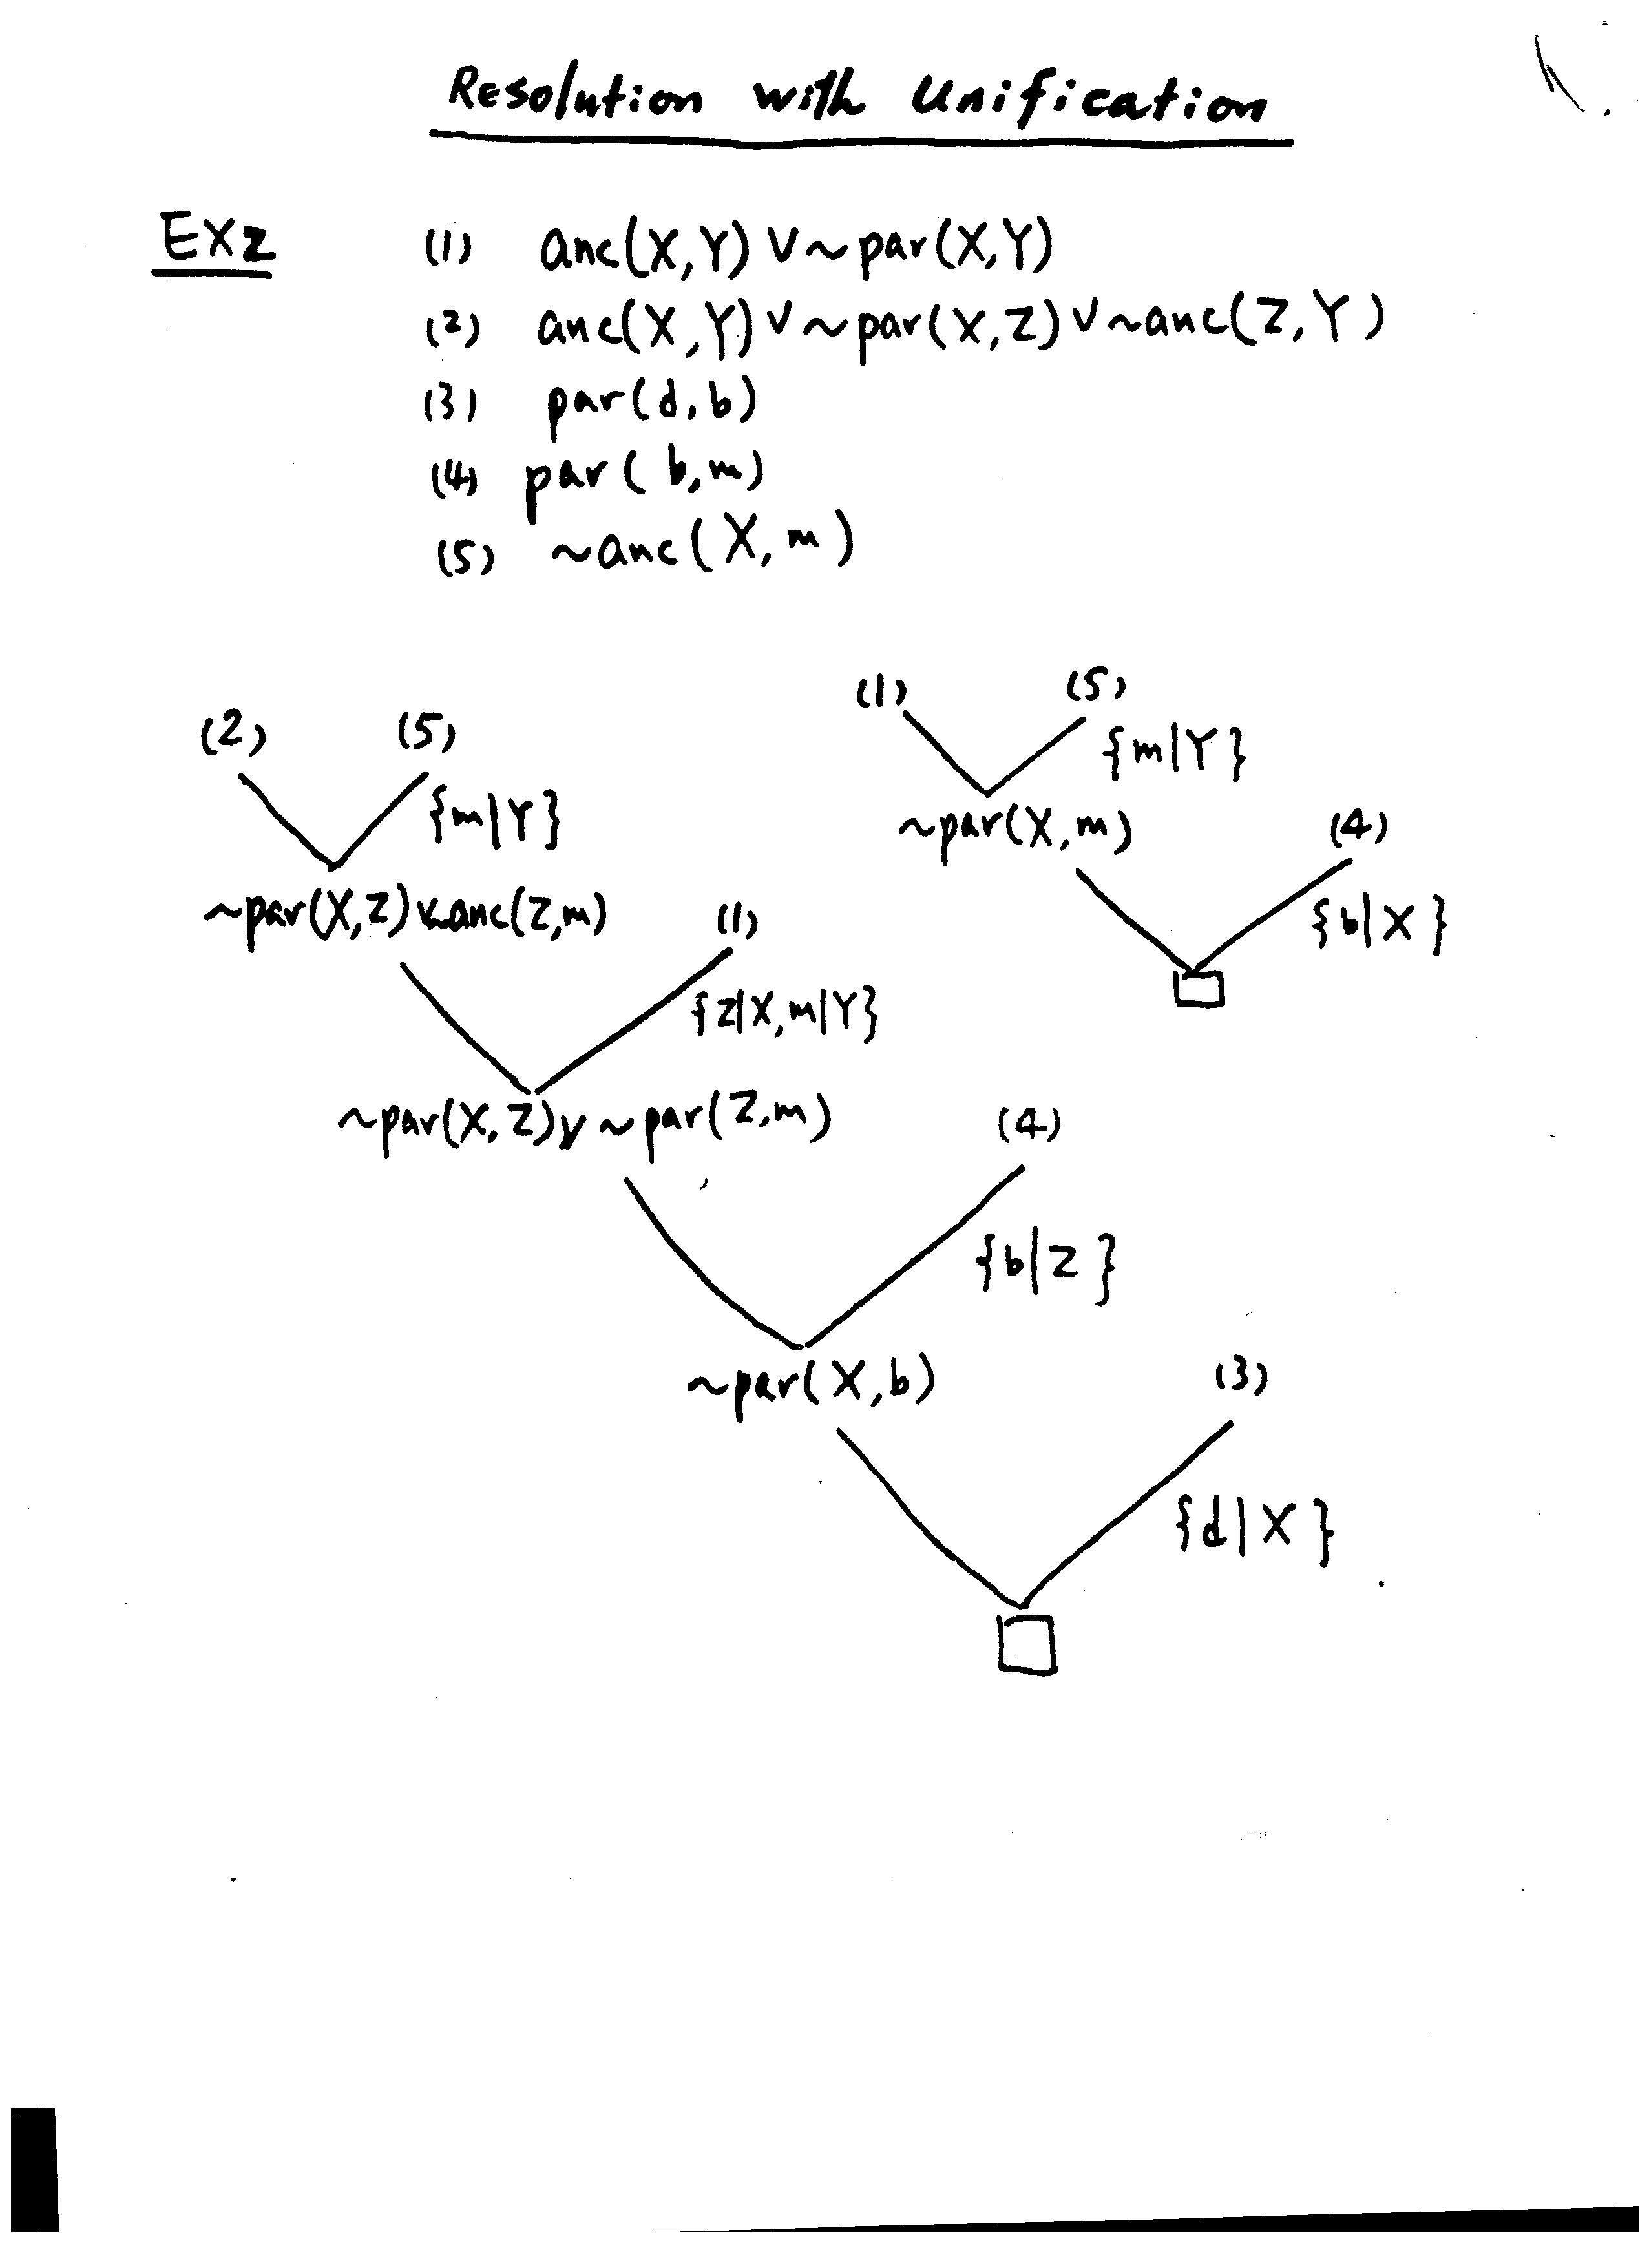 Resolution with Unification
EX2 (1) anc(X,Y) ∨ ~par(X,Y)
(2) anc(X,Y) ∨ ~par(X,Z) ∨ ~anc(Z,Y)
(3) par(d,b)
(4) par(b,m)
(5) ~anc(X,m)
(1) (5)
{m|Y}
~par(X,m) (4)
{b|X}
(2) (5)
{m|Y}
~par(X,Z) ∨~anc(Z,m) (1)
{Z|X, m|Y}
~par(X,Z) ∨ ~par(Z,m) (4)
{b|Z}
~par(X,b) (3)
{d|X}